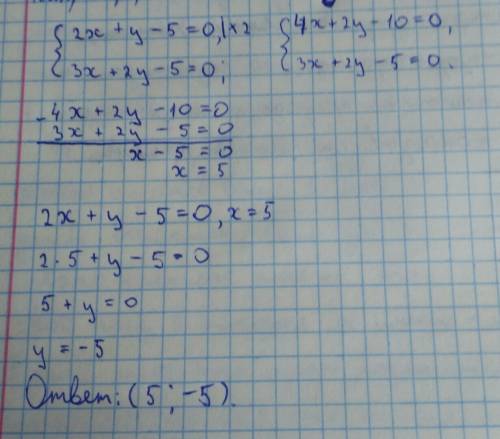 {2x + y - 5 = 0, | × 2 {4x + 2y - 10 = 0,
{3x + 2y - 5 = 0; {3x + 2y - 5 = 0.
- 4x + 2y - 10 = 0
3x + 2y - 5 = 0
x - 5 = 0
x = 5
2x + y - 5 = 0, x = 5
2 · 5 + y - 5 = 0
5 + y = 0
y = -5
Ответ: (5 ; -5).